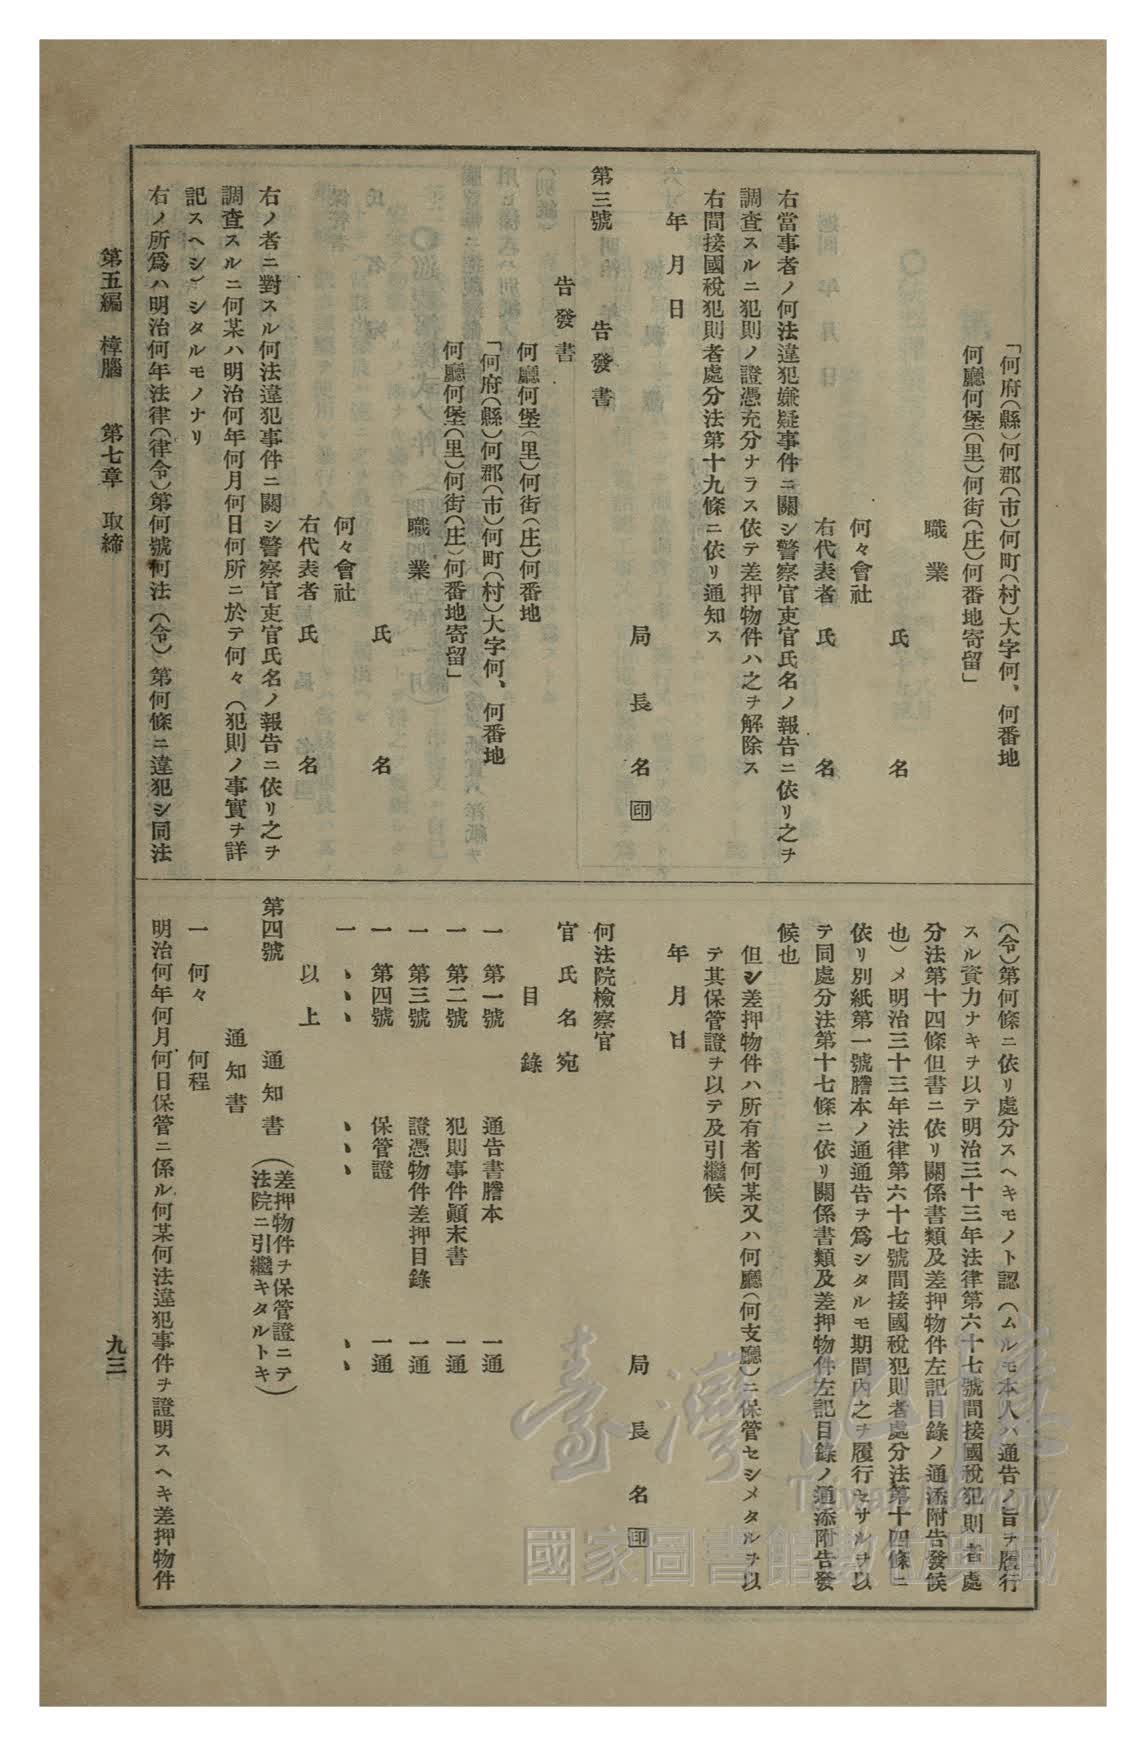 「何府(縣)何郡(市)何町(村)大字何、何番地
何廳何堡(里)何街(庄)何番地寄留」
職業
氏名
何々會社
右代表者 氏名
右當事者ノ何法違犯嫌疑事件ニ關シ警察官吏官氏名ノ報告ニ依リ之ヲ
調査スルニ犯則ノ證憑充分ナラス依テ差押物件ハ之ヲ解除ス
右間接國稅犯則者處分法第十九條ニ依リ通知ス
年月日
局長名㊞
第三號 告發書
告發書
何廳何堡(里)何街(庄)何番地
「何府(縣)何郡(市)何町(村)大字何、何番地
何廳何堡(里)何街(庄)何番地寄留」
職業
氏名
何々會社
右代表者 氏名
右ノ者ニ對スル何法違犯事件ニ關シ警察官吏官氏名ノ報告ニ依リ之ヲ
調査スルニ何某ハ明治何年何月何日何所ニ於テ何々(犯則ノ事實ヲ詳
記スヘシ)シタルモノナリ
右ノ所爲ハ明治何年法律(律令)第何號何法(令)第何條ニ違犯シ同法
(令)第何條ニ依リ處分スヘキモノト認(ムルモ本人ハ通告ノ旨ヲ履行
スル資力ナキヲ以テ明治三十三年法律第六十七號間接國稅犯則者處
分法第十四條但書ニ依リ關係書類及差押物件左記目錄ノ通添附告發候
也)メ明治三十三年法律第六十七號間接國稅犯則者處分法第十四條ニ
依リ別紙第一號謄本ノ通通告ヲ爲シタルモ期間內之ヲ履行セサルヲ以
テ同處分法第十七條ニ依リ關係書類及差押物件左記目錄ノ通添附告發
候也
但シ差押物件ハ所有者何某又ハ何廳(何支廳)ニ保管セシメタルヲ以
テ其保管證ヲ以テ及引繼候
年月日
局長名㊞
何法院檢察官
官氏名宛
目錄
一 第一號 通告書謄本 一通
一 第二號 犯則事件顚末書 一通
一 第三號 證憑物件差押目錄 一通
一 第四號 保管證 一通
一 、、、 、、、 、、
以上
第四號 通知書 (差押物件ヲ保管證ニテ
法院ニ引繼キタルトキ)
通知書
一 何々 何程
明治何年何月何日保管ニ係ル何某何法違犯事件ヲ證明スヘキ差押物件
第五編 樟腦 第七章 取締
九三
臺灣記憶
Taiwan Memory
國家圖書館數位典藏